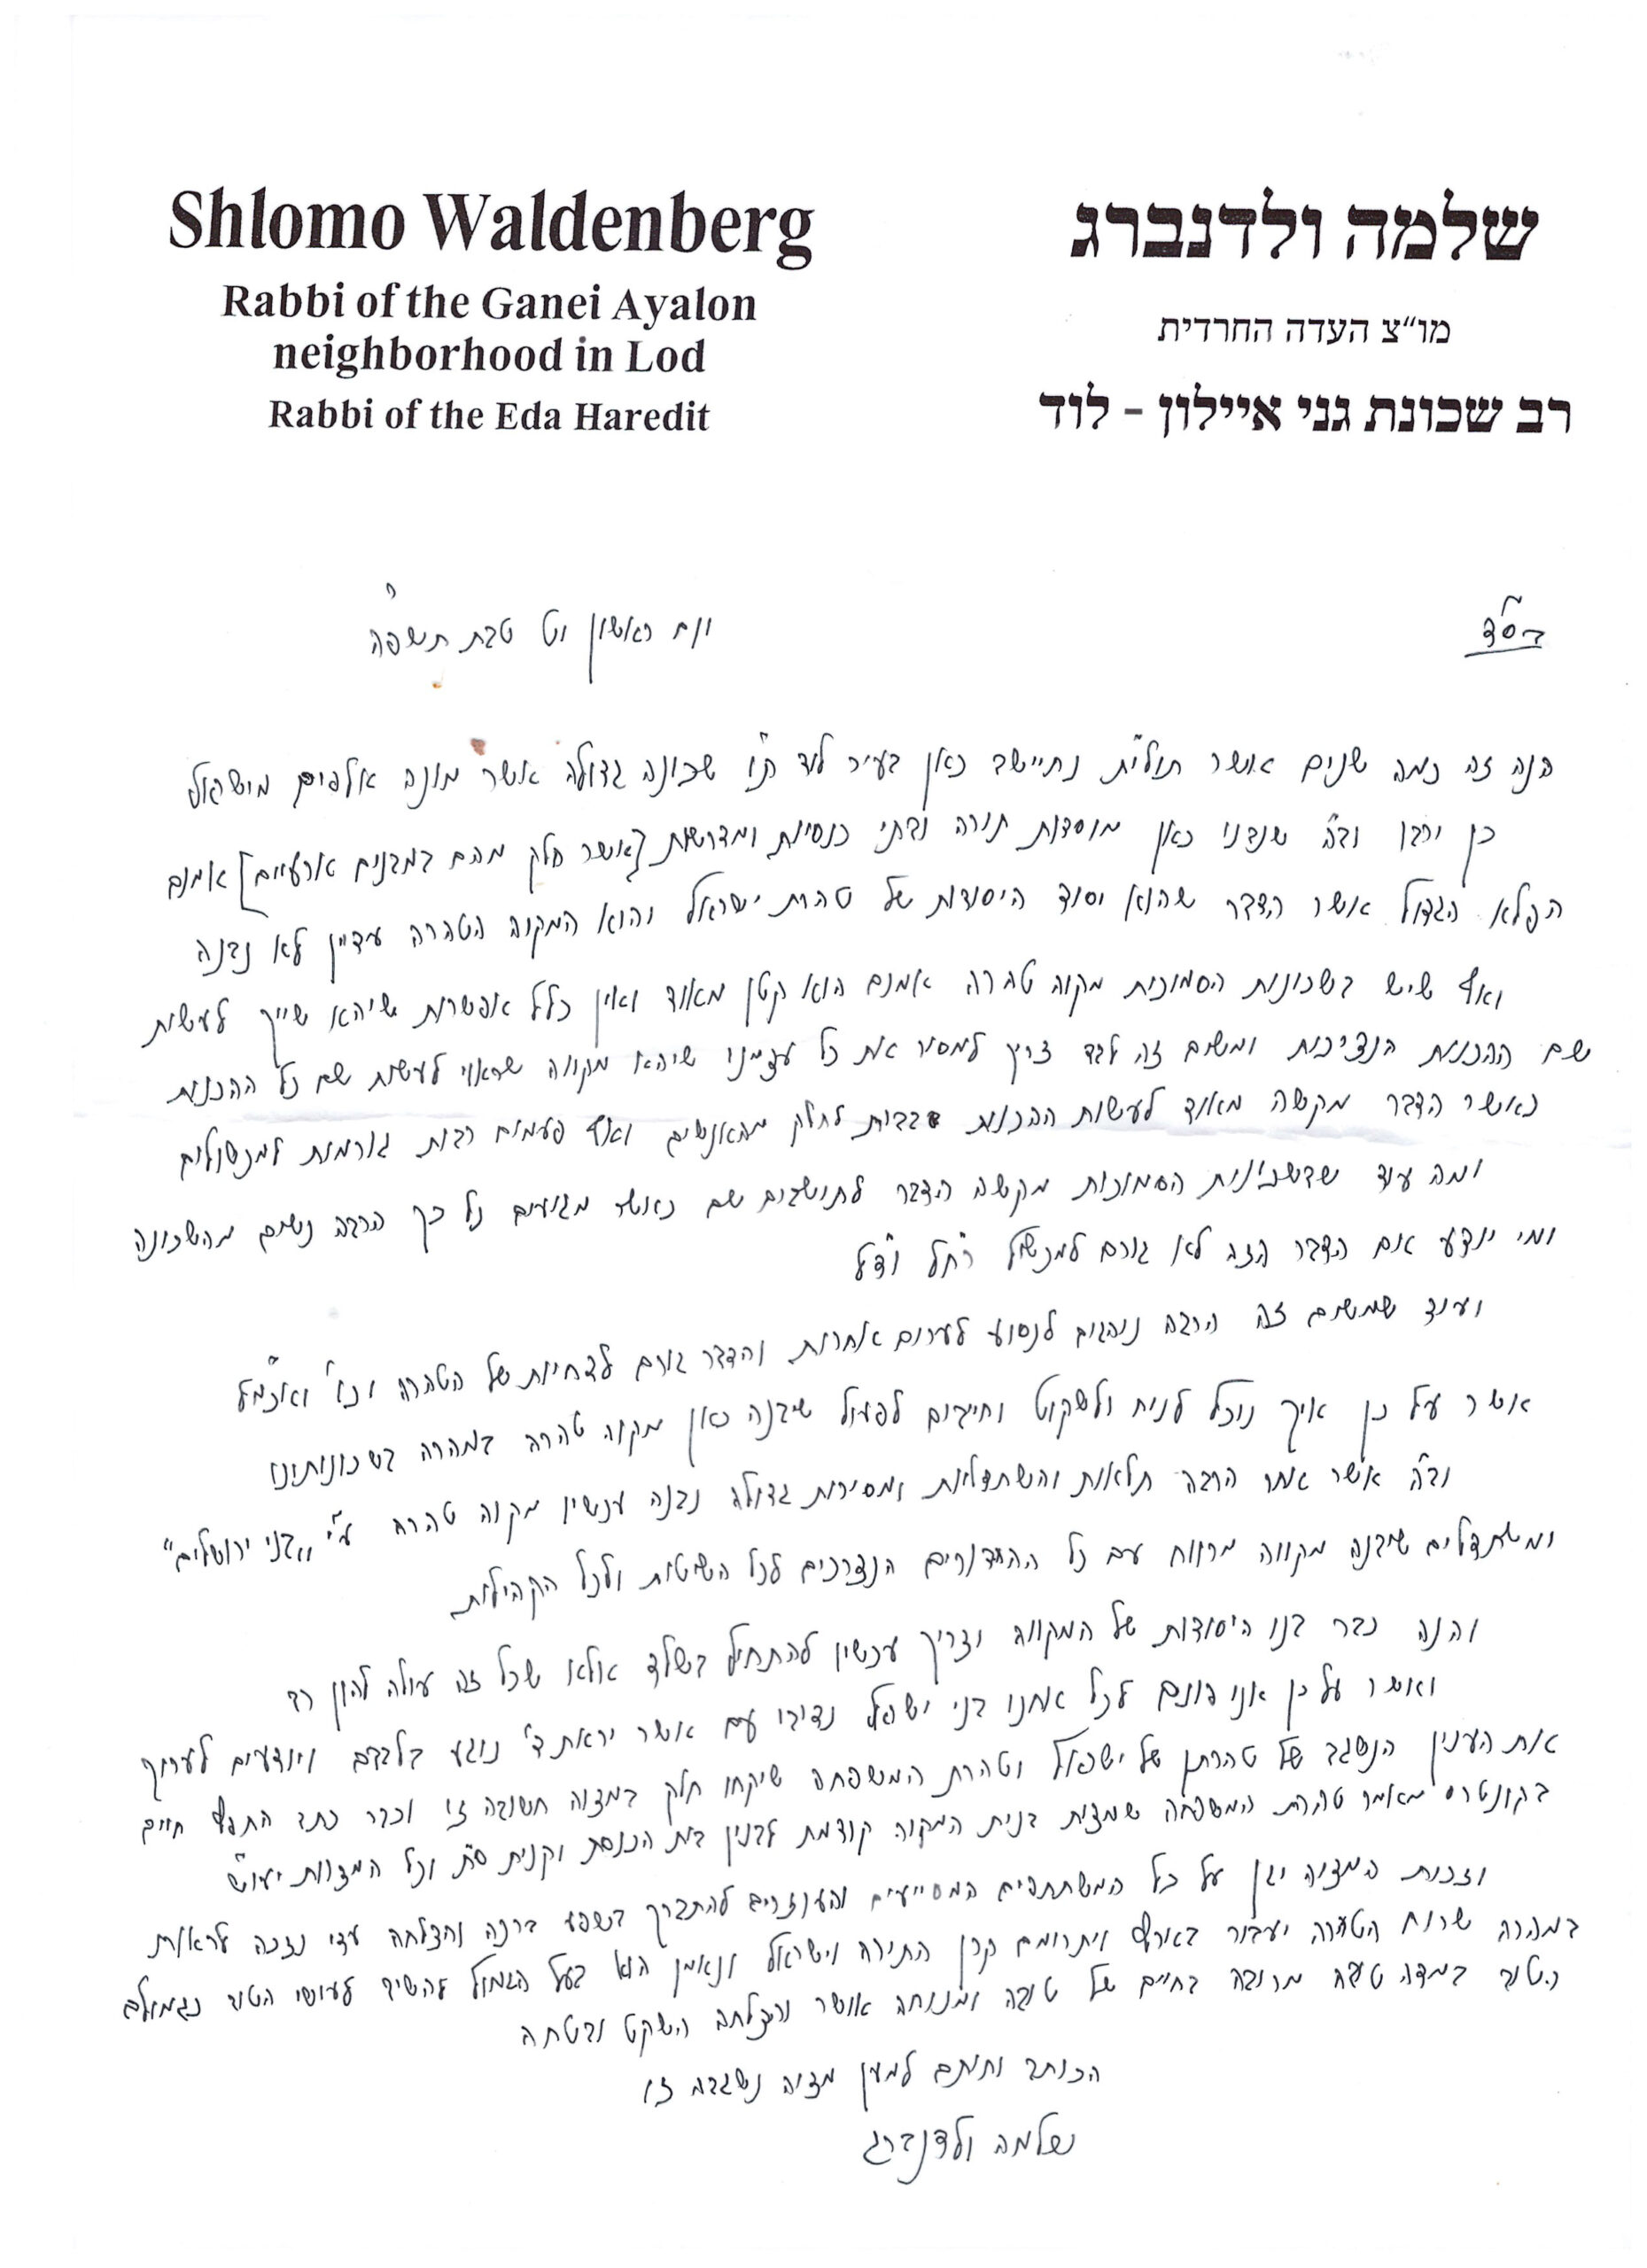 Shlomo Waldenberg
Rabbi of the Ganei Ayalon
neighborhood in Lod
Rabbi of the Eda Haredit
שלמה ולדנברג
מו״צ העדה החרדית
רב שכונת גני איילון - לוד
בס״ד
יום ראשון יט טבת תשפה
הנה זה כמה שנים אשר תולי״ת נתיישב כאן בעיר לוד ת״ו שכונה גדולה אשר מונה אלפים מישראל
כן ירבו וב״ה שנבנו כאן מוסדות תורה ובתי כנסיות ומדרשות [אשר חלק מהם במבנים ארעיים] אמנם
הפלא הגדול אשר הדבר שהוא יסוד היסודות של טהרת ישראל והוא המקוה הטהרה עדיין לא נבנה
ואף שיש בשכונות הסמוכות מקוה טהרה אמנם הוא קטן מאוד ואין כלל אפשרות שיהא שייך לעשות
שם ההכנות הנצרכות ומשום זה לבד צריך למסור את כל עצמנו שיהא מקווה שראוי לעשות שם כל ההכנות
כאשר הדבר מקשה מאוד לעשות ההכנות בבית לחלק מהאנשים ואף פעמים רבות גורמות למכשולים
ומה עוד שבשכונות הסמוכות מקשה הדבר לתושבים שם כאשר מגיעים כל כך הרבה נשים מהשכונה
ומי יודע אם הדבר הזה לא גורם למכשול ר״חל וד״ל
ועוד שמשום זה הרבה נוהגים לנסוע לערים אחרות והדבר גורם לדחיות של הטהרה וכו׳ ואכמ״ל
אשר על כן איך נוכל לנוח ולשקוט וחייבים לפעול שיבנה כאן מקוה טהרה במהרה בשכונותינו
וב״ה אשר אחר הרבה תלאות והשתדלות ומסירות גדולה נבנה עכשיו מקוה טהרה ע״י ״בני ירושלים״
ומשתדלים שיבנה מקווה מרווח עם כל ההידורים הנצרכים לכל השיטות ולכל הקהילות
והנה כבר בנו היסודות של המקווה וצריך עכשיו להתחיל בשלד אולא שכל זה עולה להון רב
ואשר על כן אנו פונים לכל אחנו בני ישראל נדיבי עם אשר יראת ד׳ נוגע בלבבם ויודעים לערוך
את הענין הנשגב של טהרתן של ישראל וטהרת המשפחה שיקחו חלק במצוה חשובה זו וכבר כתב החפץ חיים
בקונטרס מאמר טהרת המשפחה שמצות בנית המקוה קודמת לבנין בית הכנסת וקנית ס״ת וכל המצוות יעו״ש
וזכות המצוה יגן על כל המשתתפים המסייעים והעוזרים להתברך בשפע ברכה והצלחה עדי נזכה לראות
במהרה שרוח הטהרה יעבור בארץ ויתרומם קרן התורה וישראל ונאמן הוא בעל הגמול להשיב לעושי הטוב כגמולם
הטוב במדה טובה מרובה בחיים של טובה ומנוחה אושר והצלחה השקט ובטחה
הכותב וחותם למען מצוה נשגבה זו
שלמה ולדנברג